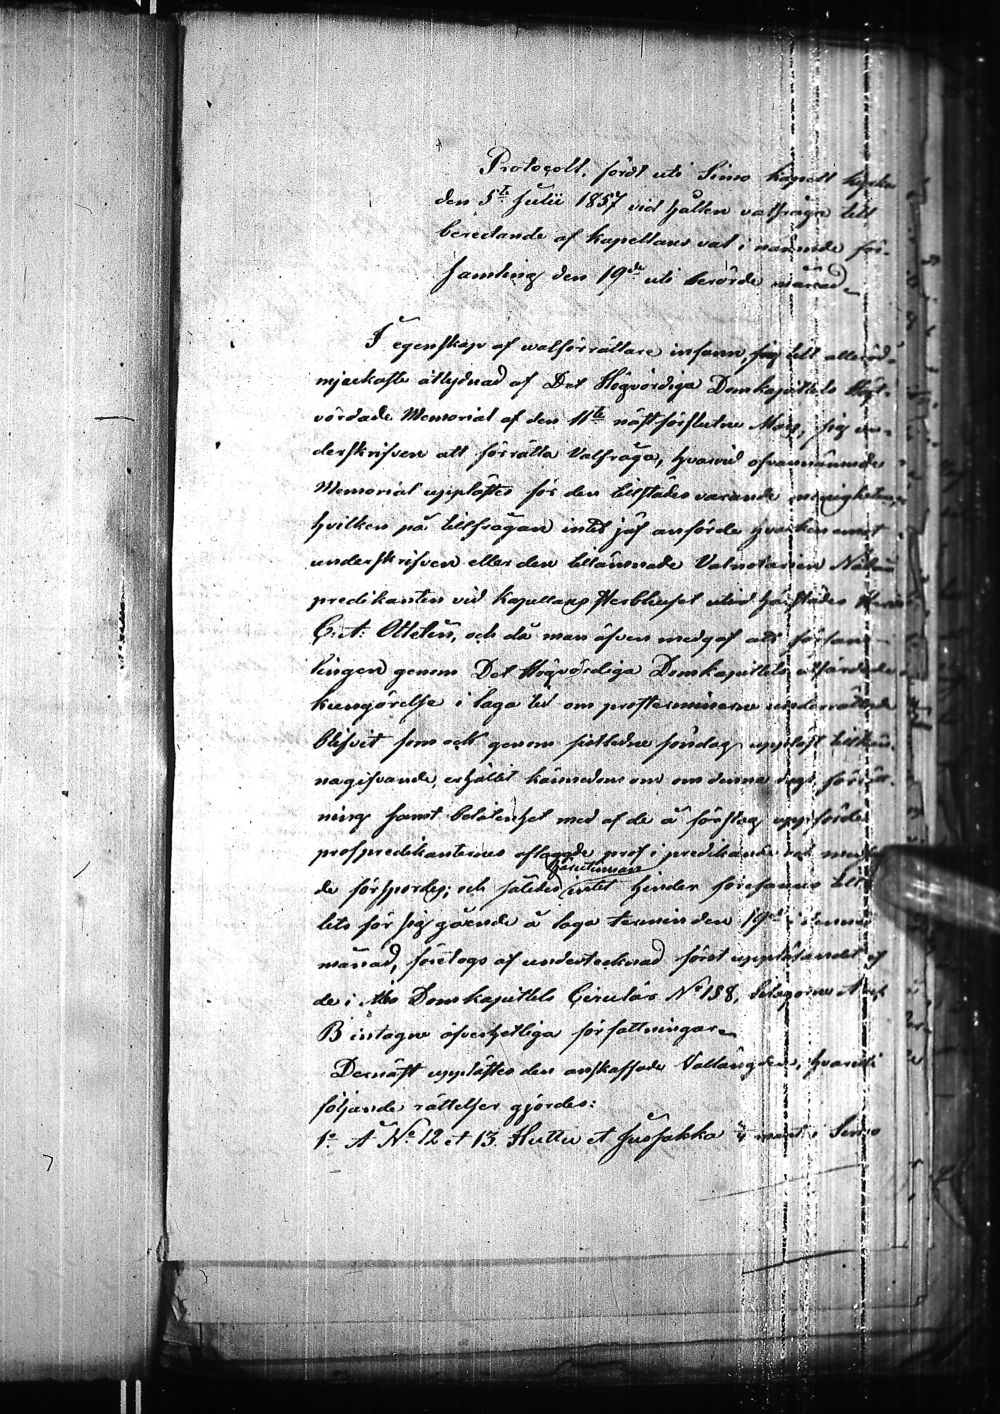 Protocoll, fördt uti Simo Kapell kyrka
den 5te Julii 1857 vid hållen valfråga till
beredande af Kapellans val i nämnde för-
samling den 19de uti berörde månad.
I egenskap af walförrättare infann sig till alleröd-
mjukaste åtlydnad af Det Högvördiga Domkapitlets Högt-
vördade Memorial af den 11te nästförflutne Mars, sig un-
derskrifven att förrätta Valfråga, hvarvid ofvannämnde
Memorial upplästes för den tillstädes varande menigheten,
hvilken på tillfrågan intet jäf anförde hvarken emot
underskrifven eller den tillämnade Valnotarien Nåden
predikanten vid Kapellans Sterbhuset utind härstädes Herr
C: A: Ottelin, och då man äfven medgaf att försam-
lingen genom Det Högvördiga Domkapitlets utfärdade
kungörelse i laga tid om profterminerne underrättad
blifvit som ock genom sistledne söndag uppläst tillkän-
nagifvande, erhållit kännedom om denna dags förrätt-
ning samt belåtenhet med af de å förslag uppförde
profpredikanternes aflagde prof i predikande och mässan-
de förspordes; och således härutinnan intet hinder förefanns till va-
lets för sig gående å laga termin den 19de i denna
månad, företogs af undertecknad först uppläsandet af
de i Åbo Domkapitlets Circulär No 158, bilagorne A och
B intagne öfverhetliga författningar.
Dernäst upplästes den anskaffade Vallängden, hvaruti
följande rättelser gjordes:
1o Å No 12 et 13. Huttu et Jussakka mant. i Simo